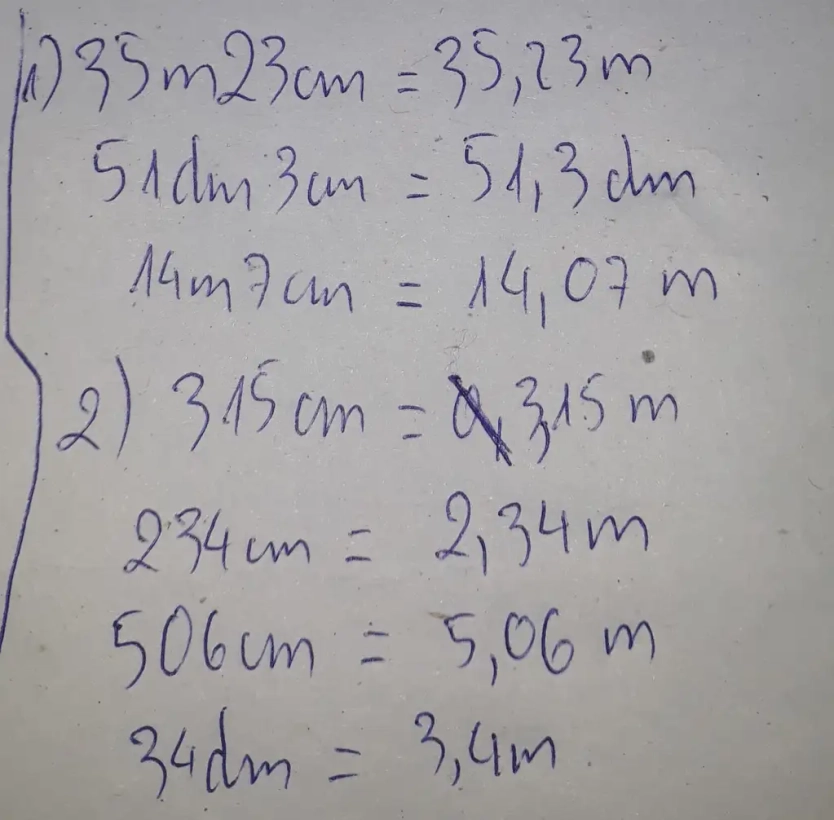 1) 35m23cm = 35,23m
51dm 3cm = 51,3dm
14m7cm = 14,07 m
2) 315cm = 3,15 m
234cm = 2,34m
506cm = 5,06 m
34dm = 3,4m